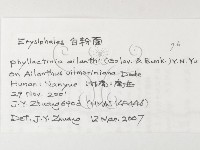 Erysiphales 白粉菌
phyllactinia ailanthi (Golov. & Bunk.) Y.N. Yu
on Ailanthus vilmoriniana Dode
Hunan: Yanyue 湖南:
29 Nov. 2001
J.Y. Zhuang
Det. J.Y. Zhuang 12 Nov. 2007